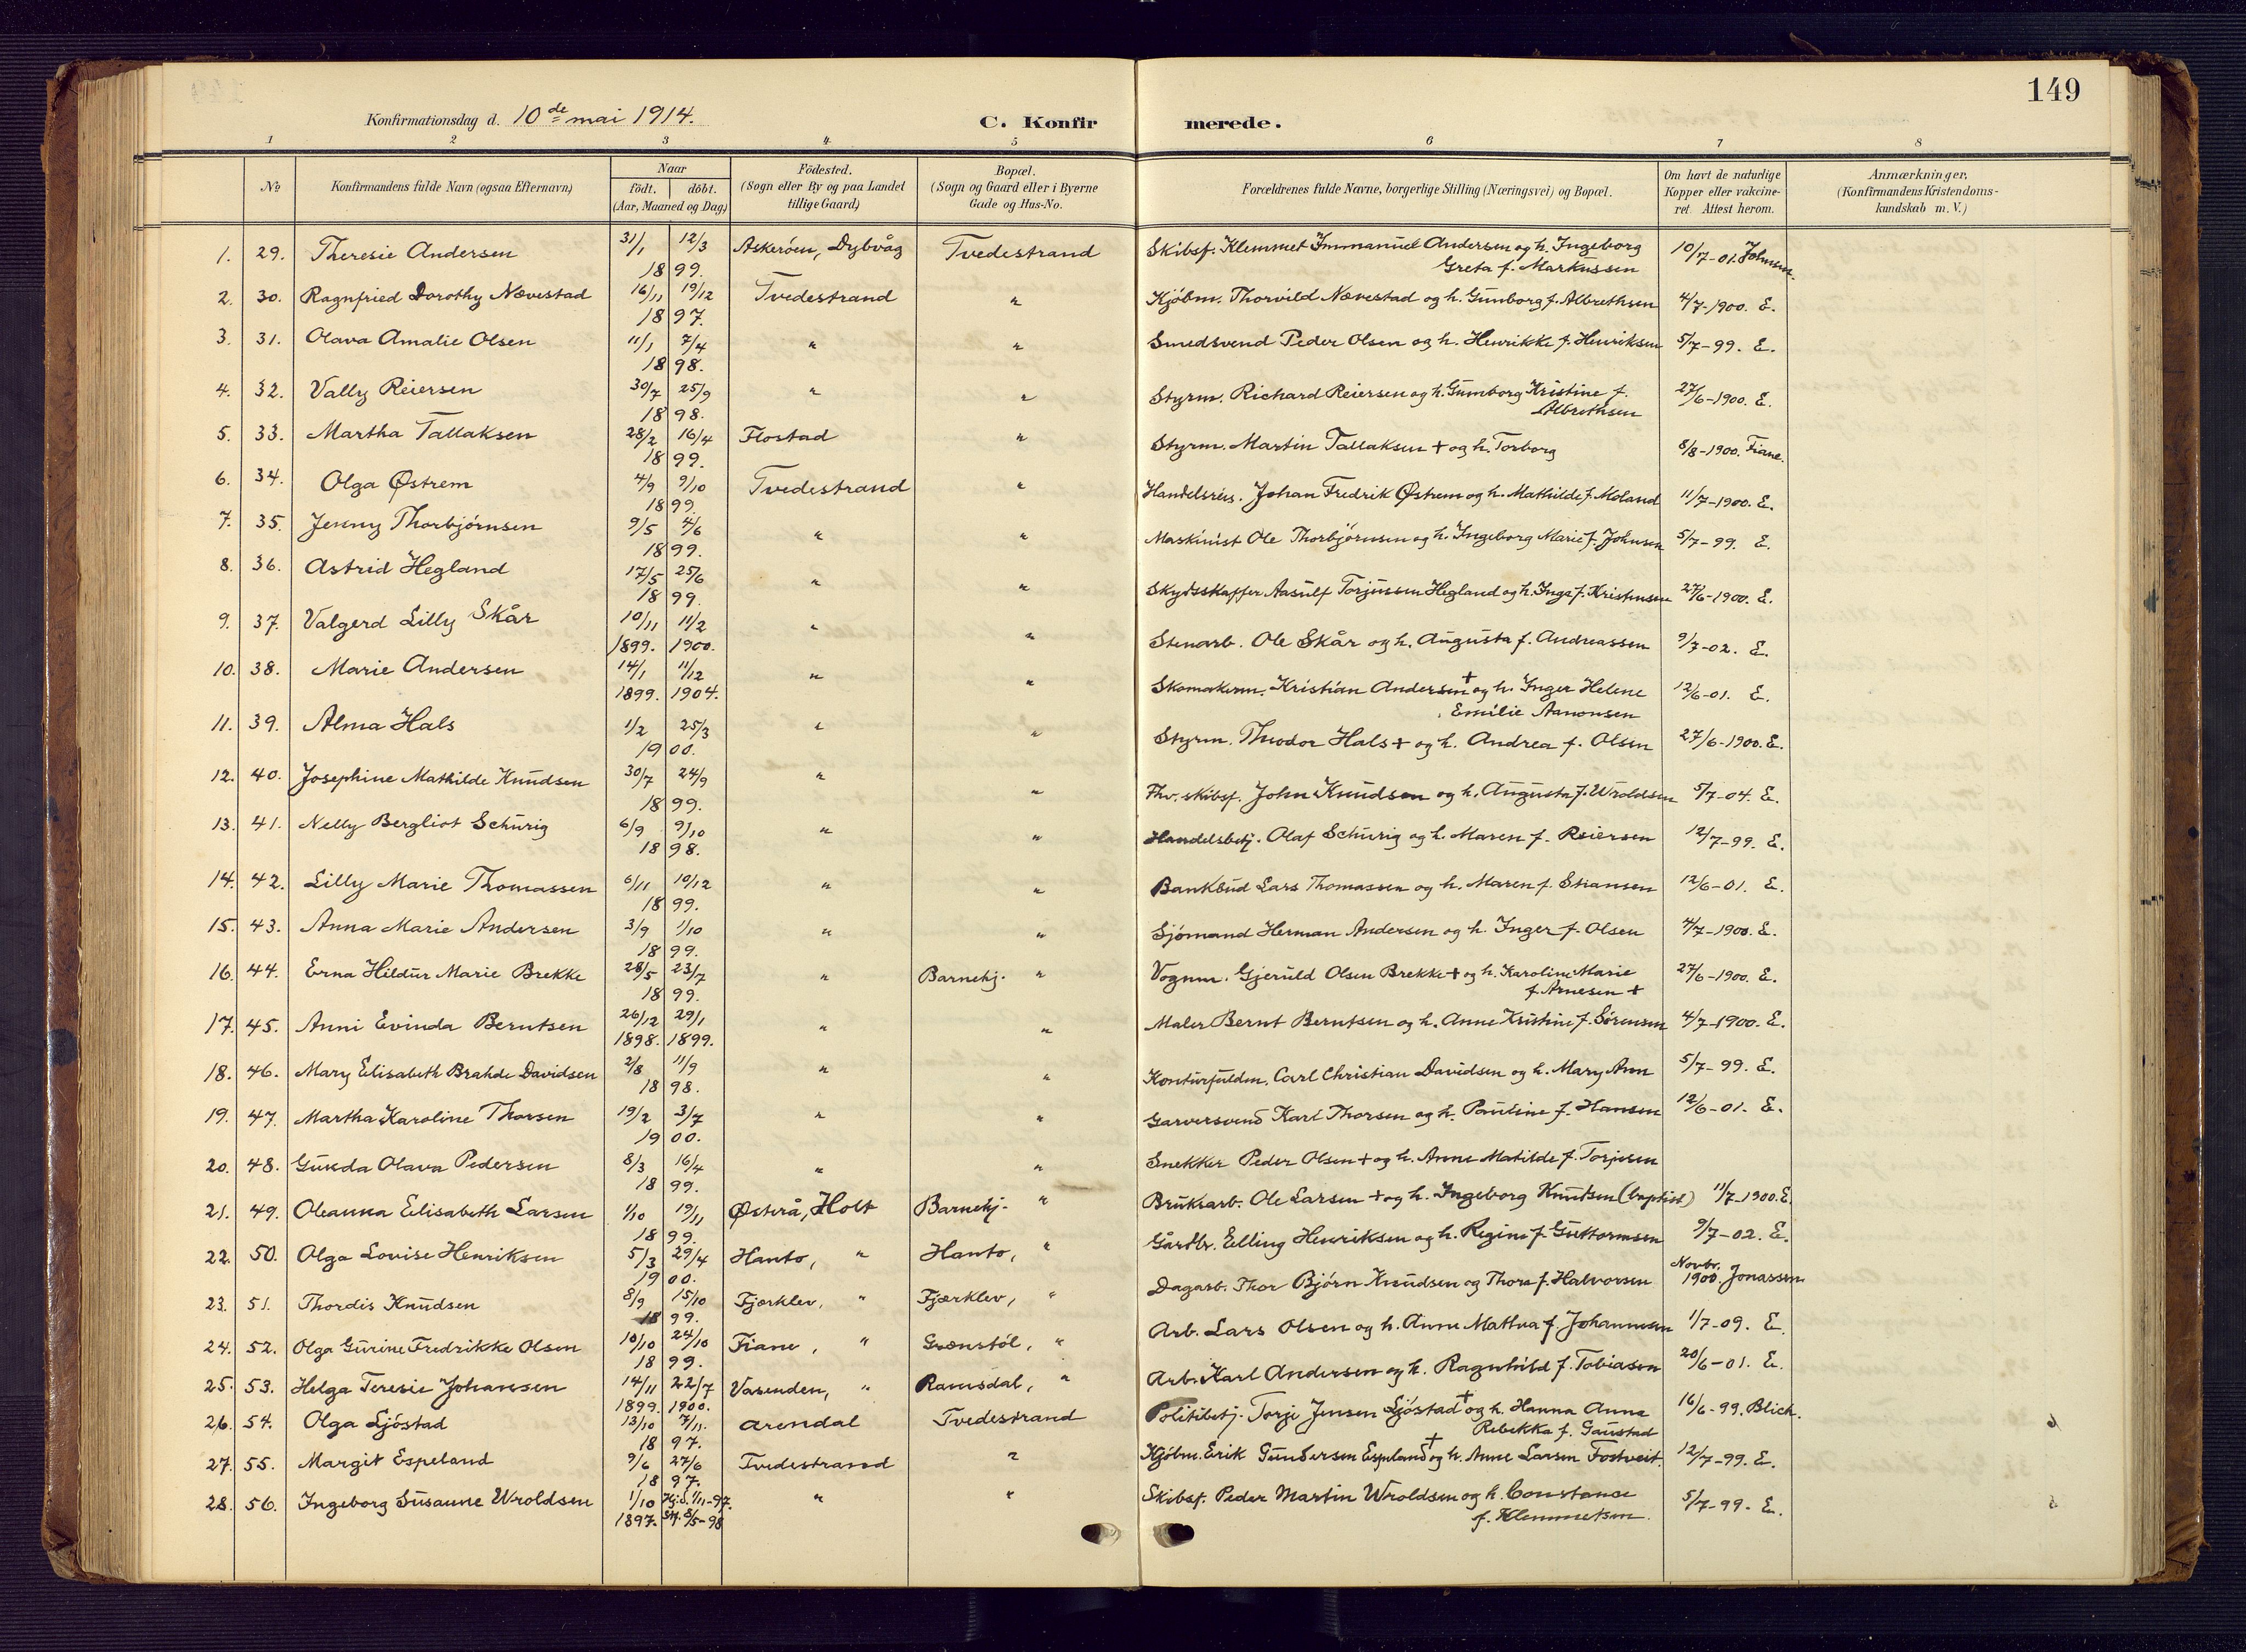 149
Konfirmationsdag d. 10de mai 1914. C. Konfirmerede.
1 2 3 4 5 6 7 8
No Konfirmandens fulde Navn (ogsaa Efternavn) Naar födt. döbt. (Aar, Maaned og Dag) Födested. (Sogn eller By og paa Landet tillige Gaard) Bopæl. (Sogn og Gaard eller i Byerne Gade og Hus-No. Forældrenes fulde Navne, borgerlige Stilling (Næringsvei) og Bopæl. Om havt de naturlige Kopper eller vakcineret. Attest herom. Anmærkninger, (Konfirmandens Kristendomskundskab m. V.)
1. 29. Theresie Andersen 31/1 12/3 Askeröen, Dybvåg Tvedestrand Skibsf. Klemmet Immanuel Andersen og h. Ingeborg 10/7-01. Johnsen.
1899. Greta f. Markussen
2. 30. Ragnfried Dorothy Nævestad 16/11 19/12 Tvedestrand " Kjöbm. Thorvild Nævestad og h. Gunborg f. Albrethsen 4/7-1900. E.
1897.
3. 31. Olava Amalie Olsen 11/1 7/4 " " Smedsvend Peder Olsen og h. Henrikke f. Henriksen 5/7-99. E.
1898.
4. 32. Vally Reiersen 30/7 25/9 " " Styrm. Richard Reiersen og h. Gumborg Kristine f. 27/6-1900. E.
1898. Albrethsen
5. 33. Martha Tallaksen 28/2 16/4 Flostad " Styrm. Martin Tallaksen + og h. Torborg 8/8-1900. Fiane.
1899.
6. 34. Olga Østrem 4/9 9/10 Tvedestrand " Handelsreis. Johan Fredrik Østrem og h. Mathilde f. Moland 11/7-1900. E.
1899.
7. 35. Jenny Thorbjörnsen 9/5 4/6 " " Maskinist Ole Thorbjörnsen og h. Ingeborg Marie f. Johnsen 5/7-99. E.
1899.
8. 36. Astrid Hegland 17/5 25/6 " " Skydsskaffer Aasulf Torjussen Hegland og h. Inga f. Kristensen 27/6-1900. E.
1899.
9. 37. Valgerd Lilly Skår 10/11 11/2 " " Stenarb. Ole Skår og h. Augusta f. Andreassen 9/7-02. E.
1899. 1900.
10. 38. Marie Andersen 14/1 11/12 " " Skomakerm. Kristian Andersen + og h. Inger Helene 12/6-01. E.
1899. 1904. Emilie Aanonsen
11. 39. Alma Hals 1/2 25/3 " " Styrm. Theodor Hals + og h. Andrea f. Olsen 27/6-1900. E.
1900.
12. 40. Josephine Mathilde Knudsen 30/7 24/9 " " Fhv. skibsf. John Knudsen og h. Augusta f. Wroldsen 5/7-04. E.
1899.
13. 41. Nelly Bergliot Schurig 6/9 9/10 " " Handelsbetj. Olaf Schurig og h. Maren f. Reiersen 12/7-99. E.
1898.
14. 42. Lilly Marie Thomassen 6/11 10/12 " " Bankbud Lars Thomassen og h. Maren f. Stiansen 12/6-01. E.
1899.
15. 43. Anna Marie Andersen 3/9 1/10 " " Sjömand Herman Andersen og h. Inger f. Olsen 4/7-1900. E.
1899.
16. 44. Erna Hildur Marie Brekke 28/5 23/7 " Barnehj. " Vognm. Gjeruld Olsen Brekke + og h. Karoline Marie 27/6-1900. E.
1899. f. Arnesen +
17. 45. Anni Evinda Berntsen 26/12 29/1 " " Maler Bernt Berntsen og h. Anne Kristine f. Sörensen 4/7-1900. E.
1898. 1899.
18. 46. Mary Elisabeth Brahde Davidsen 2/8 11/9 " " Carl Christian Davidsen og h. Mary Ann 5/7-99. E.
1898.
19. 47. Martha Karoline Thorsen 19/2 3/7 " " Garversvend Karl Thorsen og h. Pauline f. Hansen 12/6-01. E.
1900.
20. 48. Olava Pedersen 8/3 16/4 " " Snekker Peder Olsen + og h. Anne Matilde f. Torjesen
1899.
21. 49. Oleanna Elisabeth Larsen 1/10 19/11 Østerå, Holt Barnehj. " Bruksarb. Ole Larsen + og h. Ingeborg Knutsen (baptist) 11/7-1900. E.
1899.
22. 50. Olga Lovise Henriksen 5/3 29/4 Hanto, " Hanto, " Gårdbr. Elling Henriksen og h. Regine f. Guttormsen 9/7-02. E.
1900.
23. 51. Thordis Knudsen 8/9 15/10 Fjærklev, " Fjærklev, " Dagarb. Thor Bjørn Knudsen og Thora f. Halvorsen Novbr. 1900. Jonassen
1899.
24. 52. Olga Gurine Fredrikke Olsen 10/10 24/10 Fiane, " Grønstöl, " Arb. Lars Olsen og h. Anne Mathea f. Johannesen 1/7-09. E.
1899.
25. 53. Helga Teresie Johansen 14/11 22/7 Vasenden, " Ramsdal, " Arb. Karl Andersen og h. Ragnhild f. Tobiasen 20/6-01. E.
1899. 1900.
26. 54. Olga Sjöstad 13/10 7/11. Arendal Tvedestrand Politibetj. Torje Jensen Sjöstad + og h. Hanna Anna 16/6-99. Blich.
1897. Rebekka f. Gaustad
27. 55. Margit Espeland 9/6 27/6 Tvedestrand " Kjöbm. Erik Gundersen Espeland + og h. Anne Larsen Fostveit. 12/7-99. E.
1897.
28. 56. Ingeborg Susanne Wroldsen 1/10 Hj.d. 1/11-97. " " Skibsf. Peder Martin Wroldsen og h. Constance 5/7-99. E.
1897. St. 8/5-98 f. Klemmetsen.